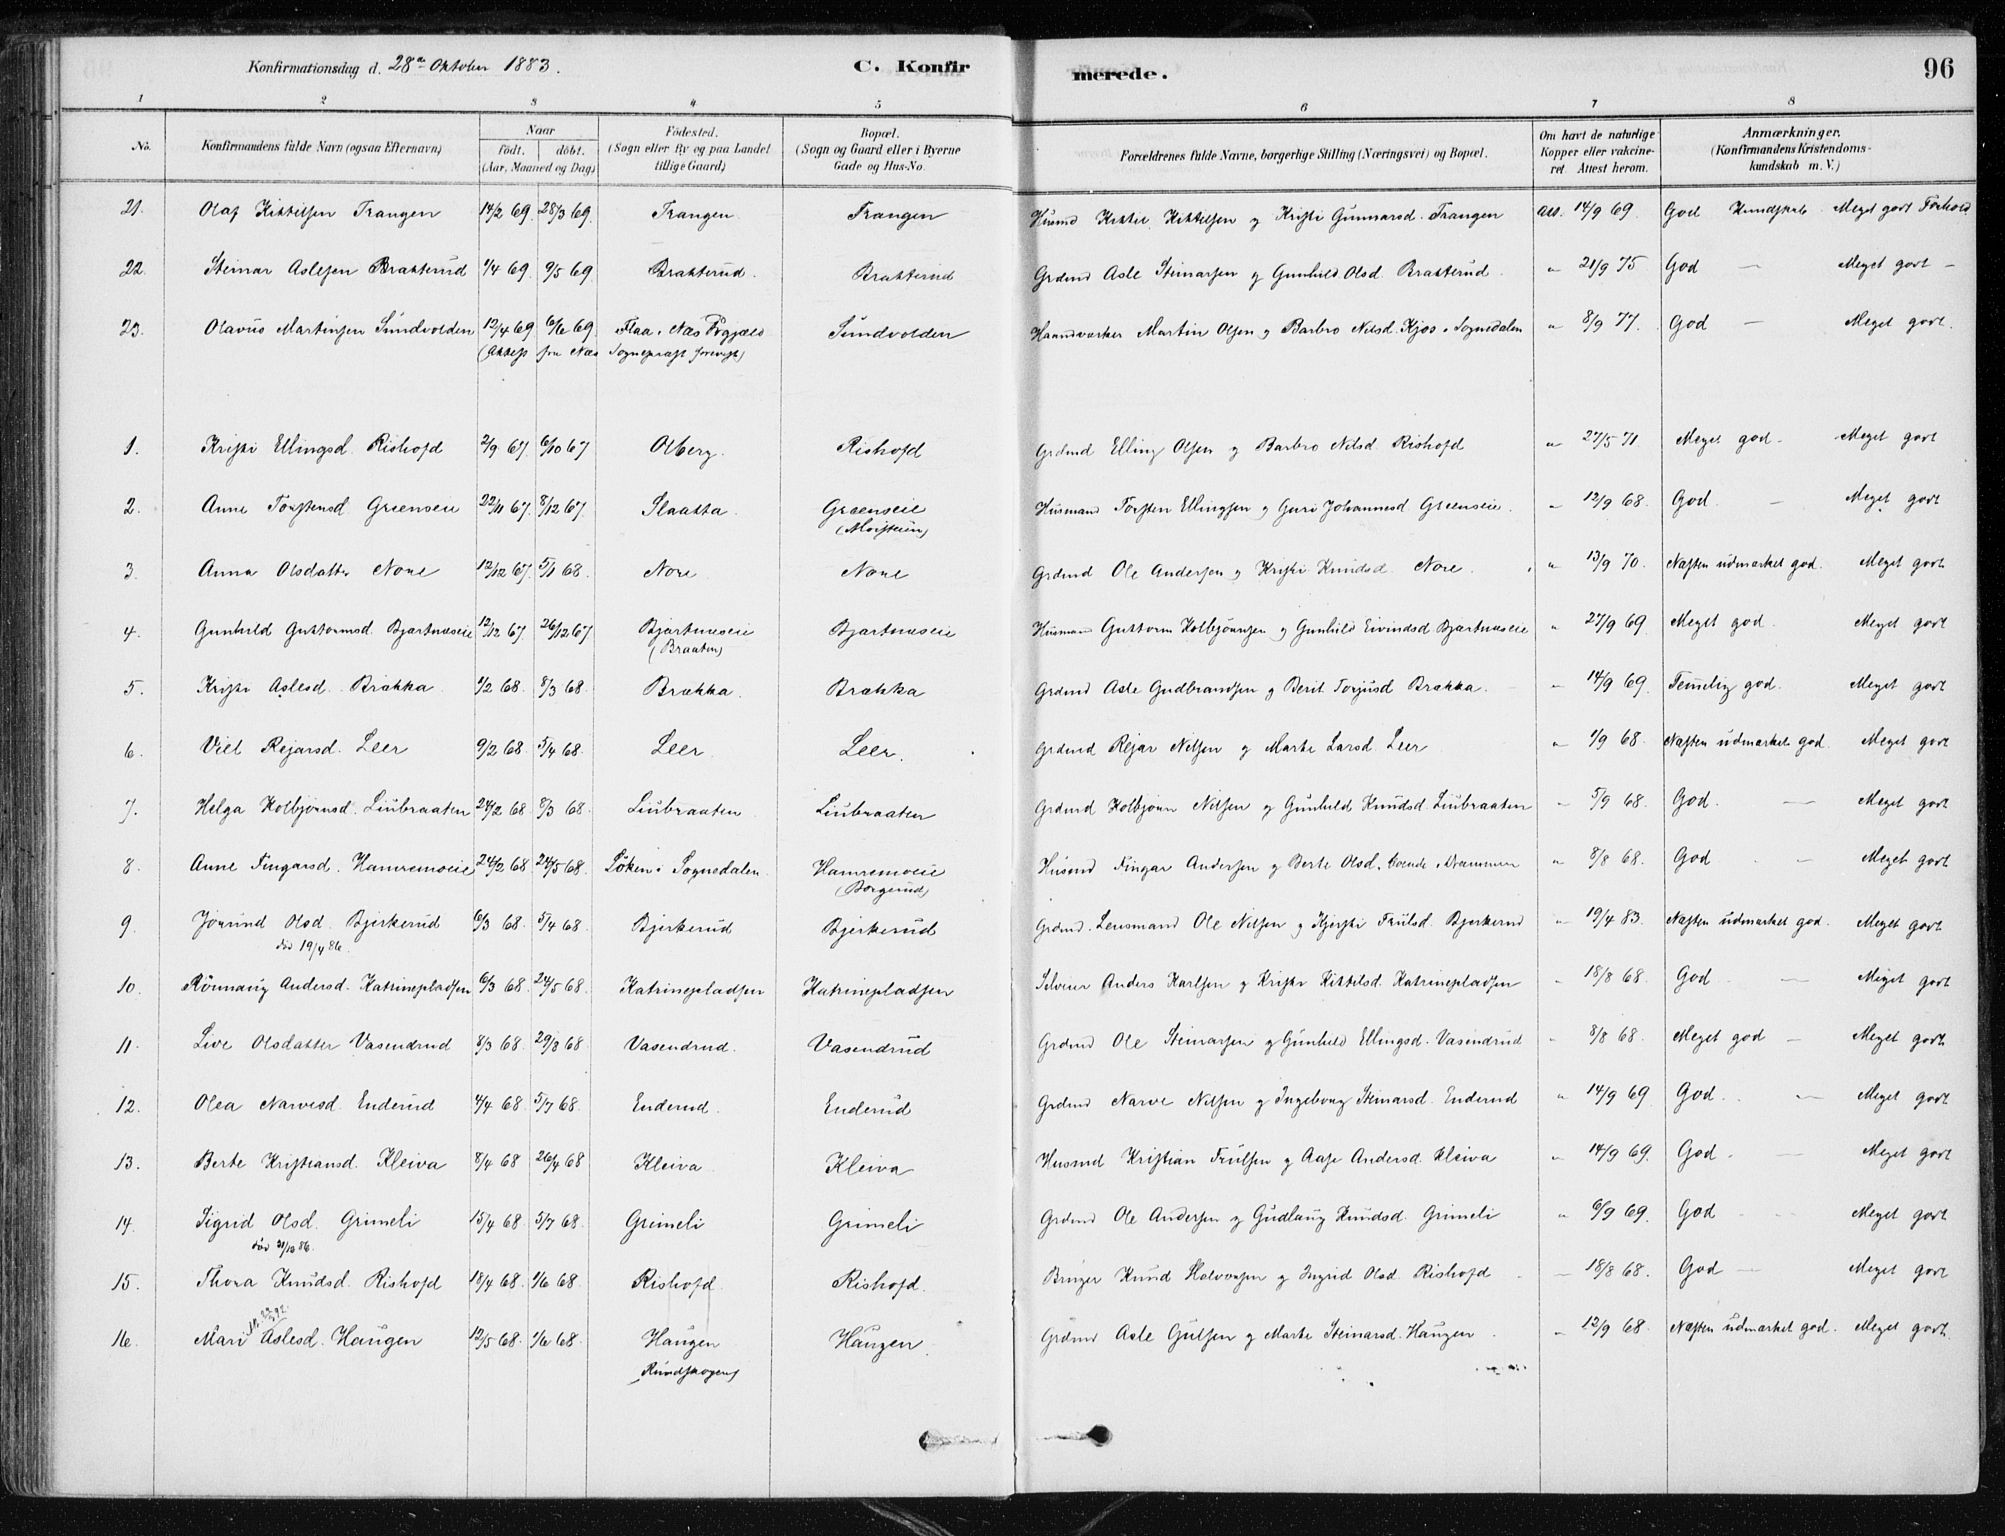 Konfirmationsdag d. 28de Oktober 1883. C. Konfirmerede. 96
1 2 3 4 5 6 7 8
No. Konfirmandens fulde Navn (ogsaa Efternavn) Naar født. døbt. (Aar, Maaned og Dag) Födested. (Sogn eller By og paa Landet tillige Gaard) Bopæl. (Sogn og Gaard eller i Byerne Gade og Hus-No. Forældrenes fulde Navne, borgerlige Stilling (Næringsvei) og Bopæl. Om havt de naturlige Kopper eller vakcineret. Attest herom. Anmærkninger. (Konfirmandens Kristendomskundskab m. V.)
21. Olaf Kittilsen Trangen 14/2 69. 28/3 69. Trangen. Trangen Husmd Kittil Kittilsen og Kristi Gunnarsd. Trangen Att. 14/9 69. God Kundskab Meget godt Forhold
22. Steinar Aslesen Brakterud 1/4 69. 9/5 69. Brakterud. Brakterud Grdmd Asle Steinarsen og Gunhild Olsd. Brakterud. " 21/9 75 God — Meget godt —
23. Olavus Martinsen Sundvolden 12/4 69 6/6 69. Flaa i Næs Prgjæld Sundvolden Haandværker Martin Olsen og Barbro Nilsd. Kjos i Sognedalen " 8/9 77. God — Meget godt.
(Attest fra Næs Sogneprest forevist)
1. Kristi Ellingsd. Rishofd 2/9 67. 6/10 67 Olberg. Rishofd Grdmd Elling Olsen og Barbro Nilsd. Rishofd " 27/5 71 Meget god. Meget godt
2. Anne Torstensd Greenseie 22/11 67. 8/12 67. Slaatta. Greenseie Husmand Torsten Ellingsen og Guri Johannesd Greenseie. " 12/9 68. God. — Meget godt
3. Anna Olsdatter Nore 12/12 67. 5/1 68. Nore Nore Grdmd Ole Andersen og Kristi Knudsd. Nore. " 13/9 70. Næsten udmærket god. Meget godt
4. Gunhild Guttormsd. Bjartnæseie 12/12 67. 26/12 67. Bjartnæseie Bjartnæseie Husmand Guttorm Kolbjønsen og Gunhild Eivindsd Bjartnæseie " 27/9 69. Meget god. Meget godt
(Braaten)
5. Kristi Aslesd. Brækka 1/2 68. 8/3 68. Brækka. Brækka Grdmd Asle Gudbrandsen og Berit Torjusd Brækka. " 14/9 69. Temelig god. Meget godt
6. Viel Rejarsd. Leer 9/2 68. 5/4 68. Leer. Leer. Grdmd Rejar Nilsen og Marte Larsd. Leer " 1/9 68. Næsten udmærket god. Meget godt
7. Helga Kolbjørnsd. Liubraaten 24/2 68. 8/3 68. Liubraaten Liubraaten Grdmd Kolbjørn Nilsen og Gunhild Knudsd Liubraaten " 5/9 68. God. — Meget godt
8. Anne Fingarsd. Hamremoeie 24/2 68. 24/5 68. Løken i Sognedalen Hamremoeie Husmd Fingar Andersen og Berte Olsd. boende i Drammen " 8/8 68. God — Meget godt
(Borgerud)
9. Jørund Olsd. Bjerkerud 6/3 68. 5/4 68. Bjerkerud Bjerkerud Grdmd. Lensmand Ole Nilsen og Kjersti Trulsd. Bjerkerud " 19/4 83. Næsten udmærket god. Meget godt
død 19/4 86.
10. Rønnaug Andersd. Katrinepladsen 6/3 68. 24/5 68. Katrinepladsen Katrinepladsen Selveier Anders Karlsen og Kristi Kittilsd. Katrinepladsen " 18/8 68. God — Meget godt
11. Live Olsdatter Vasendrud 8/3 68. 29/3 68. Vasendrud. Vasendrud Grdmd Ole Steinarsen og Gunhild Ellingsd. Vasendrud " 8/8 68. Meget god — Meget godt
12. Olea Narvesd. Enderud 4/4 68. 5/7 68. Enderud. Enderud Grdmd Narve Nilsen og Ingeborg Steinarsd. Enderud " 14/9 69. God. — Meget godt
13. Berte Kristiansd. Kleiva 8/4 68 26/4 68 Kleiva Kleiva Husmd Kristian Trulsen og Aase Andersd. Kleiva " 14/9 69. God. — Meget godt
14. Sigrid Olsd. Grimeli 15/4 68. 5/7 68. Grimeli Grimeli Grdmd Ole Andersen og Gudlaug Knudsd. Grimeli " 6/9 69. God Meget godt
død 21/10 86.
15. Thora Knudsd. Rishofd 18/4 68. 1/6 68. Rishofd. Rishofd. Bruger Knud Halvorsen og Ingrid Olsd Rishofd — 18/8 68. God — Meget godt
16. Mari Aslesd. Haugen 12/5 68. 1/6 68. Haugen Haugen Grdmd Asle Gulsen og Marte Steinarsd. Haugen. " 12/9 68. Næsten udmærket god. Meget godt.